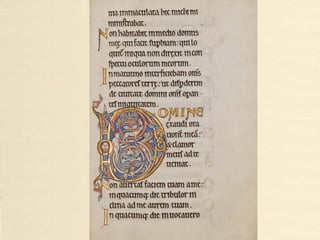 uia inmaculata hic michi mi
nistrabat.
Non habitabit in medio domus
mee qui facit supbiam: qui lo
quit iniqua non direxit in con
spectu oculorum meorum.
In matutino interficiebam oms
peccatores terre: ut disperderem
de ciuitate domini oms opan
tes iniquitatem.
DOMINE
exaudi ora
tione mea:
& clamor
meus ad te
ueniat.
Non auertas faciem tuam a me:
in quacumq; die tribulor in
clina ad me aurem tuam.
In quacumq; die inuocauero